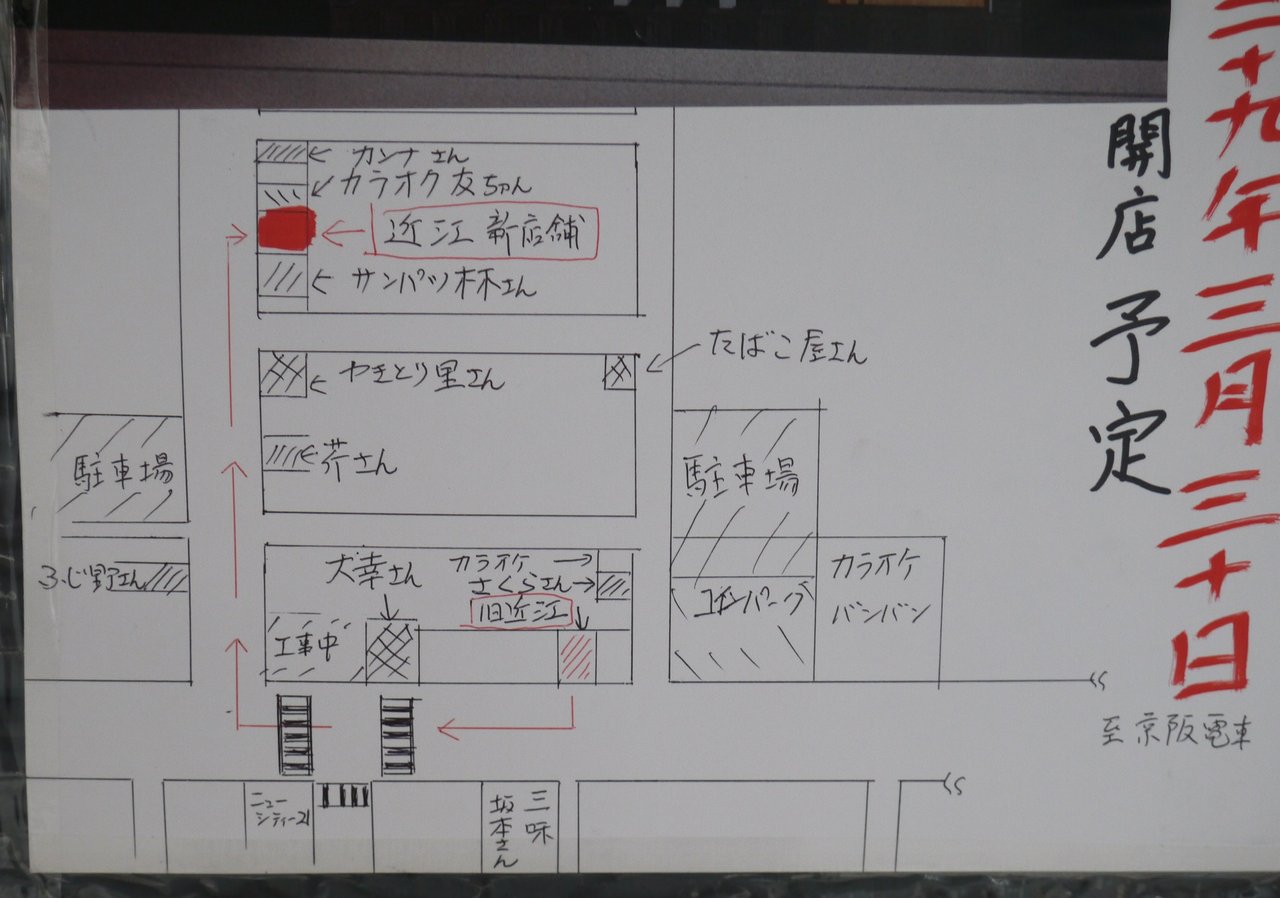 二十九年三月三十日
開店予定
カンナさん
カラオク友ちゃん
近江新店舗
サンパツ林さん
たばこ屋さん
やきとり里さん
芥さん
駐車場
駐車場
ふじ野さん
大幸さん
カラオケ
さくらさん
旧近江
工事中
コインパーク
カラオケ
バンバン
至京阪電車
ニュー
シティー21
三味
坂本さん